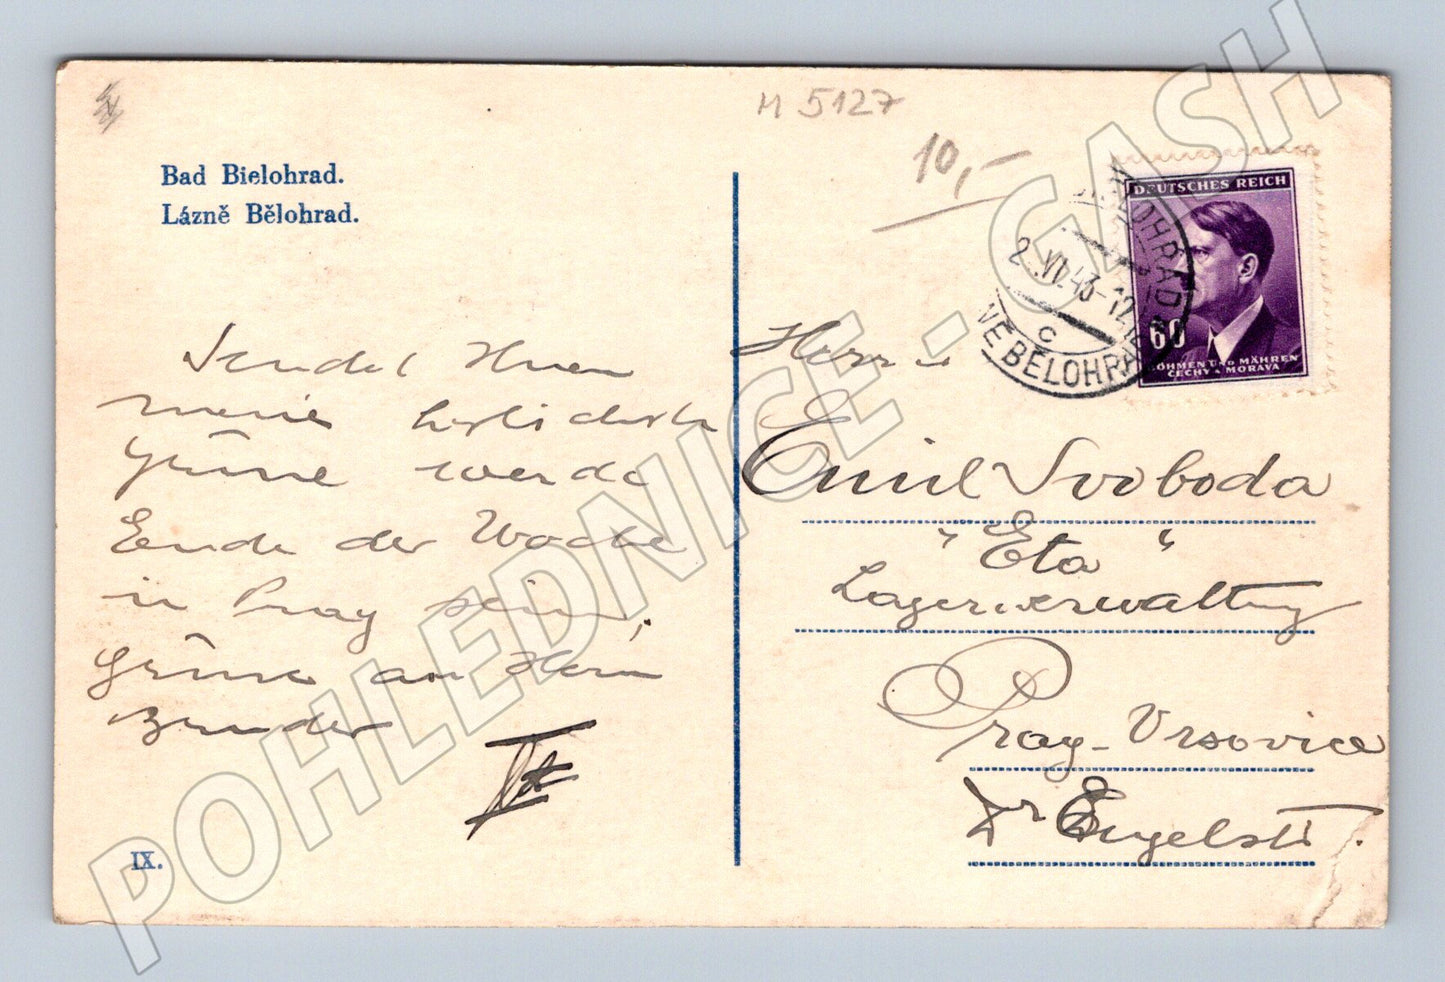 M 5127
10,-
Bad Bielohrad.
Lázně Bělohrad.
DEUTSCHES REICH
60
BÖHMEN UND MÄHREN
ČECHY A MORAVA
2.VI.43-12
C
VĚ BĚLOHRAD
Sendet Ihnen
meine herlichste
Grüsse werde
Ende der Woche
in Prag sein,
Grüsse an Herrn
IX.
Herrn
Emil Svoboda
"Eta"
Lagerverwaltung
Prag-Vrsovice
Dr Engelstr.
POHLEDNICE - GASH